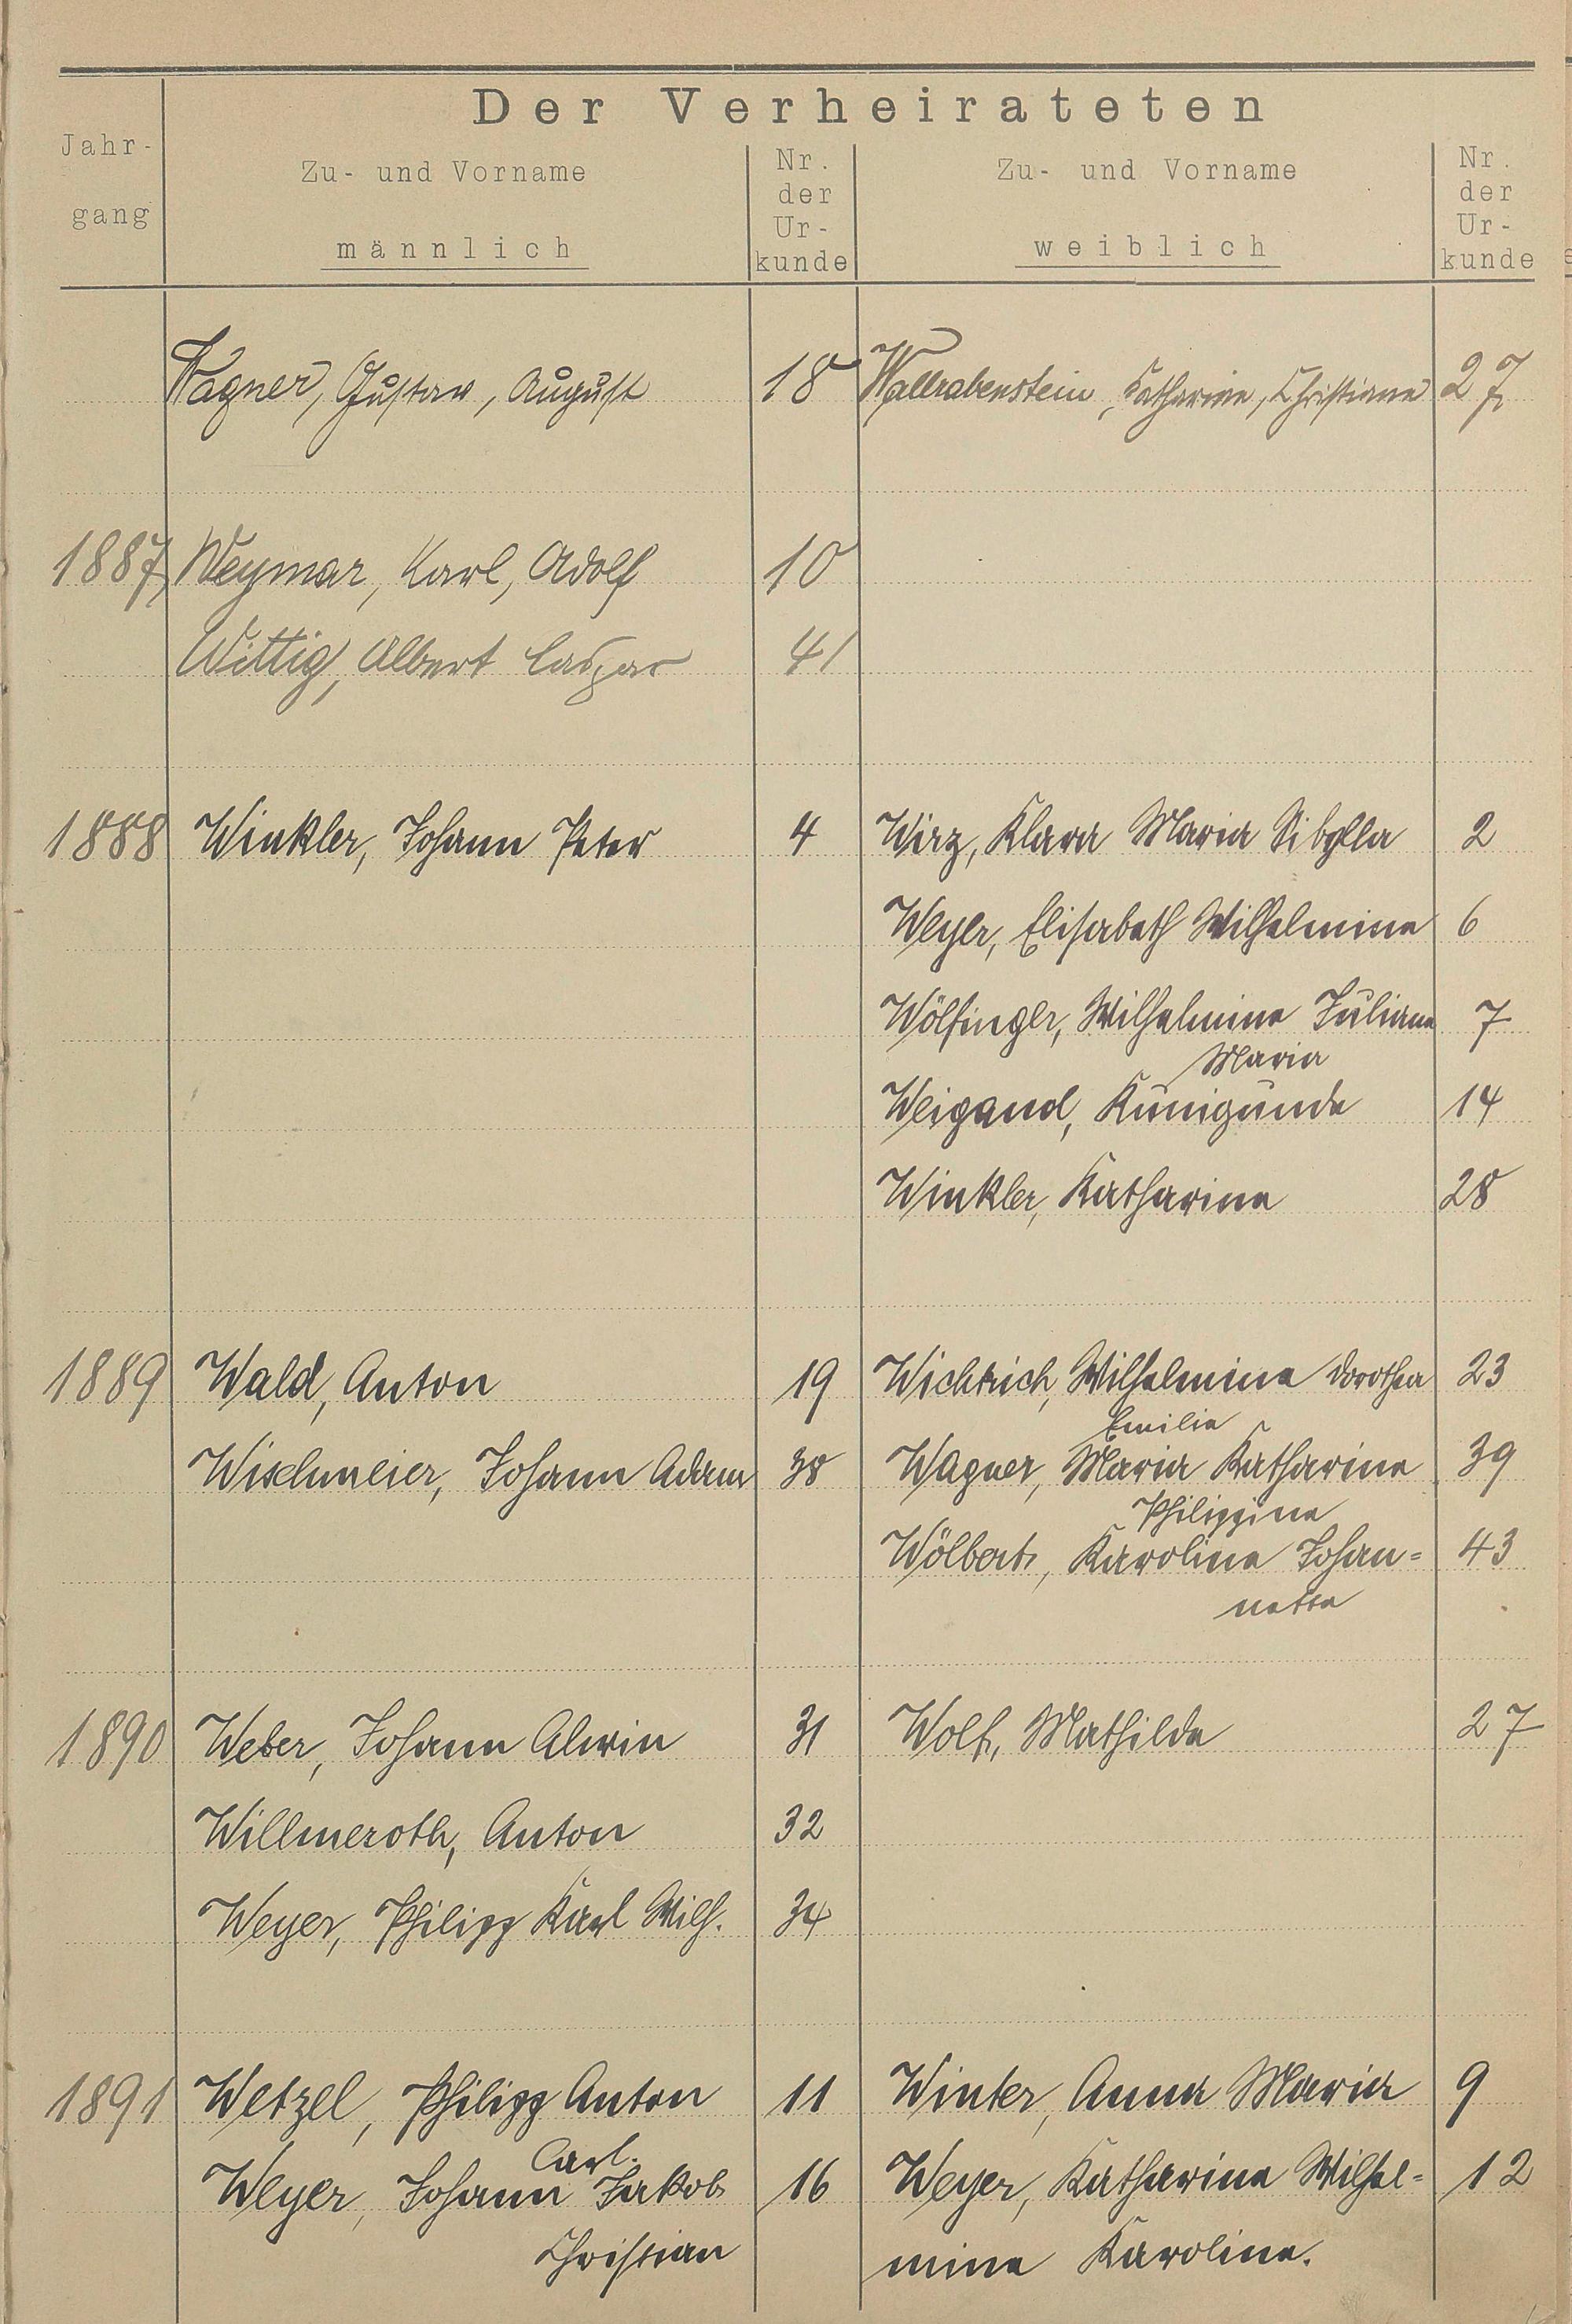 Der Verheirateten
Jahr-
gang
Zu- und Vorname
männlich
Nr.
der
Ur-
kunde
Zu- und Vorname
weiblich
Nr.
der
Ur-
kunde
Wagner, Gustav, August 18 Wallrabenstein, Katharine, Christiane 27
1887 Weymar, Karl, Adolf 10
Wittig, Albert Caspar 41
1888 Winkler, Johann Peter 4 Wirz, Klara Maria Sibylla 2
Weyer, Elisabeth Wilhelmine 6
Wölfinger, Wilhelmine Juliane 7
Maria
Weigand, Kunigunde 14
Winkler, Katharine 28
1889 Wald, Anton 19 Wichtrich, Wilhelmine Dorothea 23
Emilie
Wischmeier, Johann Adam 38 Wagner, Maria Katharine 39
Philippine
Wölbert, Karoline Johan= 43
nette
1890 Weber, Johann Alwin 31 Wolf, Mathilde 27
Willmeroth, Anton 32
Weyer, Philipp Karl Wilh. 34
1891 Wetzel, Philipp Anton 11 Winter, Anna Maria 9
Carl.
Weyer, Johann Jakob 16 Weyer, Katharine Wilhel= 12
Christian mine Karoline.